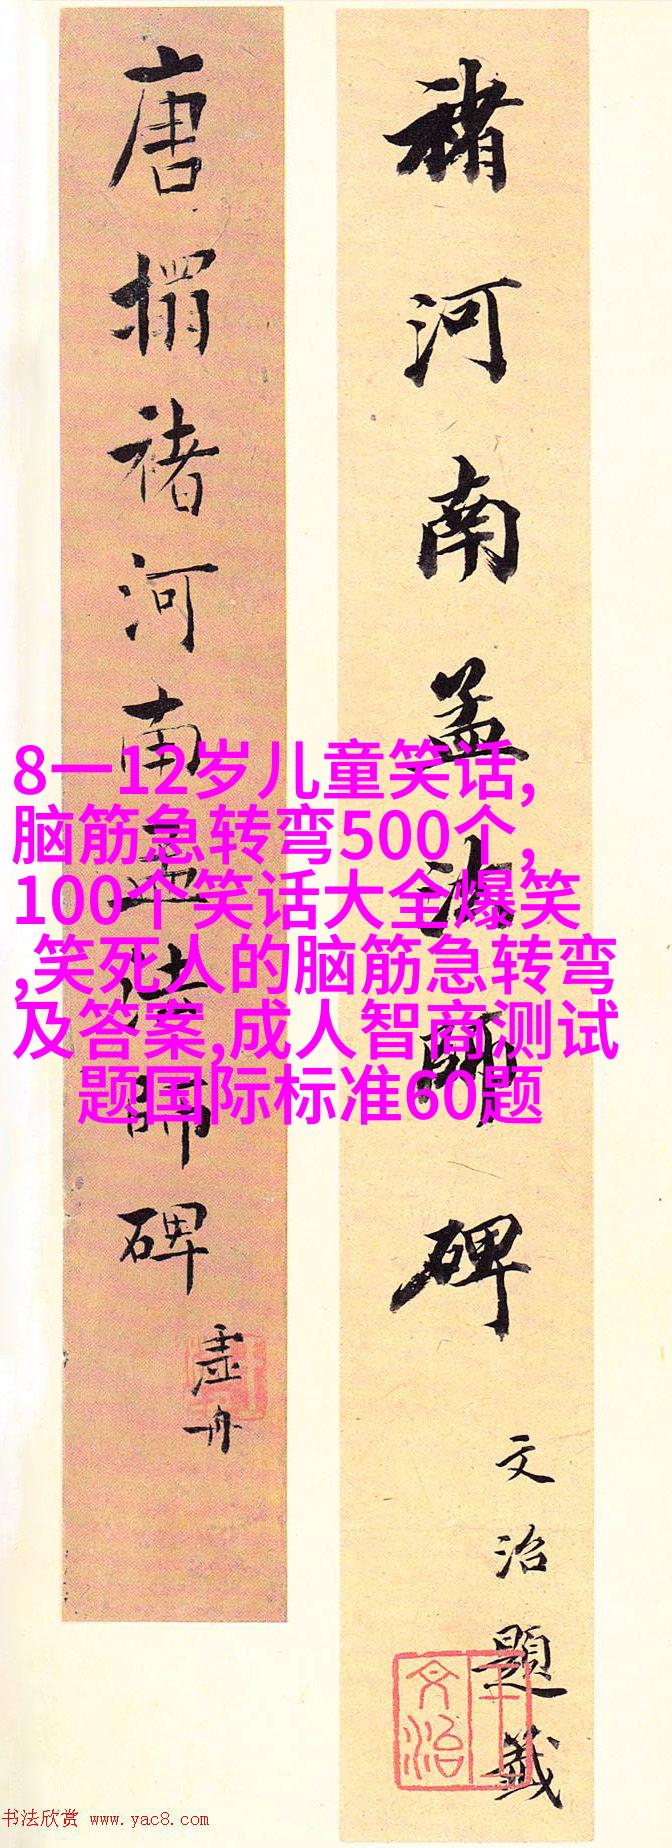 褚河南孟法師碑
文治題籤
王文治
唐搨褚河南孟法師碑
虛舟
8一12岁儿童笑话,
脑筋急转弯500个,
100个笑话大全爆笑
,笑死人的脑筋急转弯
及答案,成人智商测试
题国际标准60题
书法欣赏 www.yac8.com